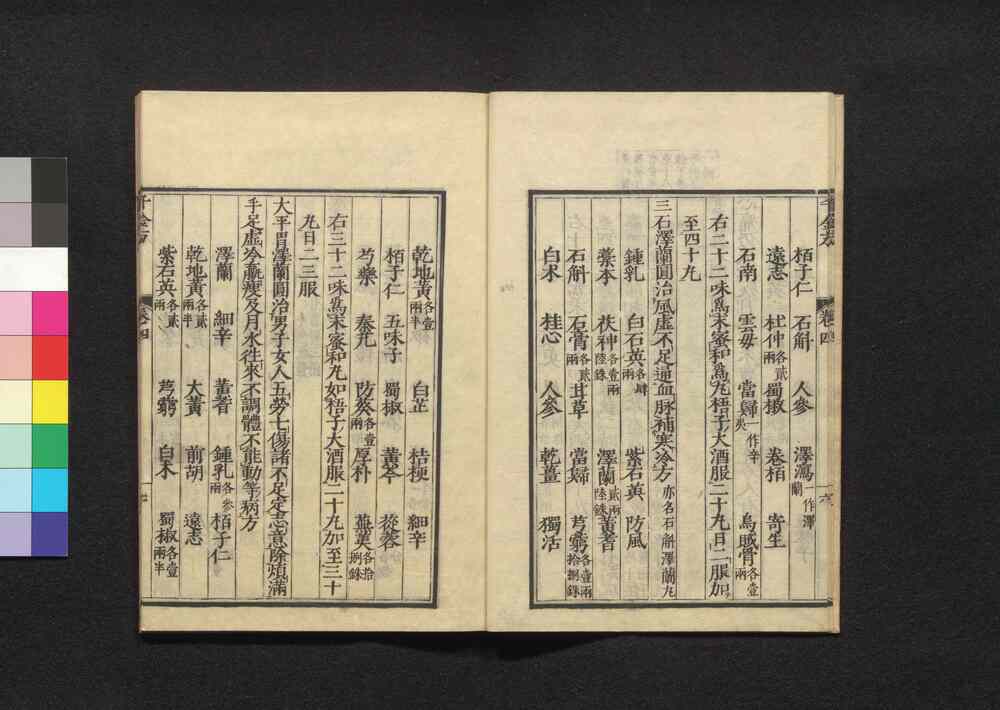 栢子仁　石斛　人參　澤瀉一作澤蘭
遠志　杜仲各貳兩　蜀椒　卷栢　寄生
石南　雲母　當歸一作辛夷　烏賊骨各壹兩
右二十二味爲末蜜和爲丸梧子大酒服二十丸日二服加
至四十丸
三石澤蘭圓治風虛不足通血脉補寒冷方亦名石斛澤蘭丸
鍾乳　白石英各肆兩　紫石英　防風
藁本　茯神各壹兩陸銖　澤蘭貳兩陸銖　黃耆
石斛　石膏各貳兩　甘草　當歸　芎藭各壹兩拾捌銖
白朮　桂心　人參　乾薑　獨活
千金方
卷四
十六
乾地黃各壹兩半　白芷　桔梗　細辛
栢子仁　五味子　蜀椒　黃芩　蓯蓉
芍藥　秦艽　防葵各壹兩　厚朴　蕪荑各拾捌銖
右三十二味爲末蜜和丸如梧子大酒服二十丸加至三十
丸日二三服
大平胃澤蘭圓治男子女人五勞七傷諸不足定志意除煩滿
手足虛冷羸瘦及月水徃來不調體不能動等病方
澤蘭　細辛　黃耆　鍾乳各參兩　栢子仁
乾地黃各貳兩半　大黃　前胡　遠志
紫石英各貳兩　芎藭　白朮　蜀椒各壹兩半
千金方
卷四
十七